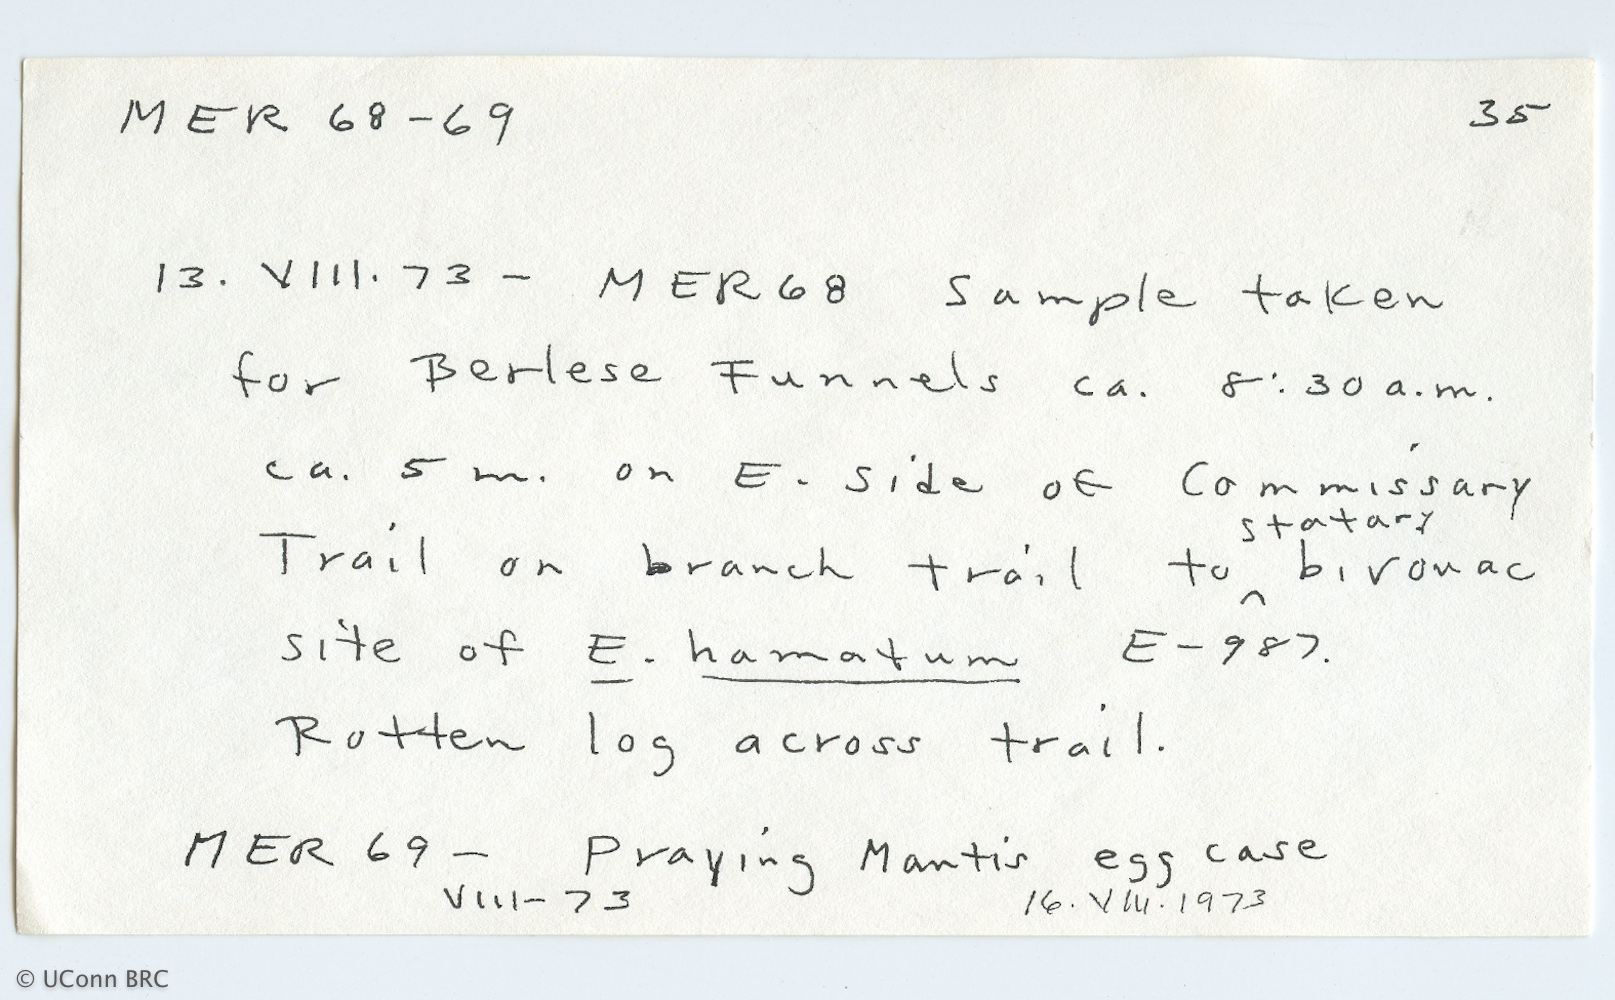 MER 68-69 35
13. VIII. 73 - MER 68 Sample taken
for Berlese Funnels ca. 8:30 a.m.
ca. 5 m. on E. side of Commissary
statary
Trail on branch trail to ^ bivouac
site of E. hamatum E-987.
Rotten log across trail.
MER 69 - Praying Mantis egg case
VIII-73 16. VIII. 1973
© UConn BRC